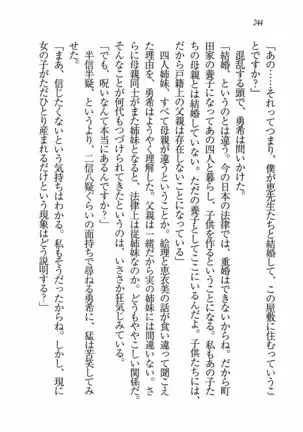 244
「あの……それってつまり、僕が恵先生たちと結婚して、この屋敷に住むっていうこ
とですか」
混乱する頭で、勇希は問いかけた。
「結婚、というのとは違う。今の日本の法律では、重婚はできないからな。だから町
田家の養子になって、あの四人と暮らし、子供を作るということだ。私もあの子た
ちの母親とは結婚していない。ただの養子としてここにいるんだよ。子供たちには、
だから戸籍上の父親は存在しないことになっている」
四人姉妹、というのに、絵理と恵衣美の話が食い違って聞こえ
た理由を、勇希はようやく理解した。父親は一緒だから実の姉妹には間違いない。さ
らに母親同士がまた姉妹となると、法律上は従姉妹なのか。どうもややこしい関係だ。
そんなことが何代もつづけられてきたというのは、いささか狂気じみている。
「でも、呪いなんて本当にあるんですか?」
半信半疑、というより、二信八疑くらいの面持ちで尋ねる勇希に、猛は苦笑してみ
せた。
「まあ、信じたくないという気持ちはわかる。私もそうだったからね。しかし、現に
女の子がただひとり産まれるだけという現象はどう説明する?」